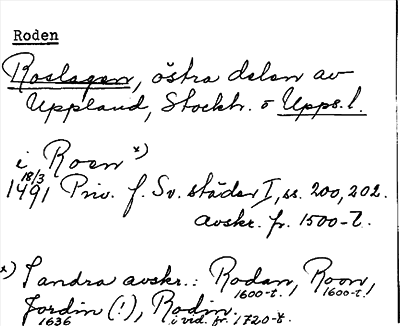 Roden
Roslagen, östra delen av
Uppland, Stockh. o Upps. l.
i Roon x)
18/3
1491 Priv. f. Sv. städer I, ss. 200, 202.
avskr. fr. 1500-t.
x) I andra avskr.: Rodan, Roon,
1600-t. 1600-t.
Jordin (!), Rodin.
1636 i vid. fr. 1720-t.